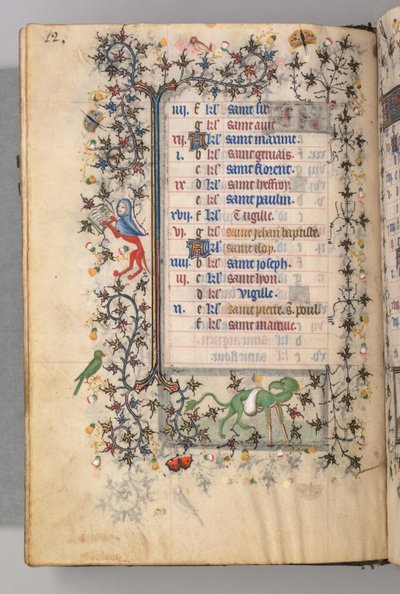 12.
iiii. f kł saint sir
g kł saint
xij. A kł saint maxime.
i. b kł saint geruais.
c kł saint florent.
ix d kł saint
e kł saint paulin.
xvij. f kł Vigille.
vj. g kł saint jehan baptiste.
A kł saint eloy.
xiiij. b kł saint joseph.
iij. c kł saint lyon.
d kł Vigille.
xi. e kł saint pierre. s. poul.
f kł saint